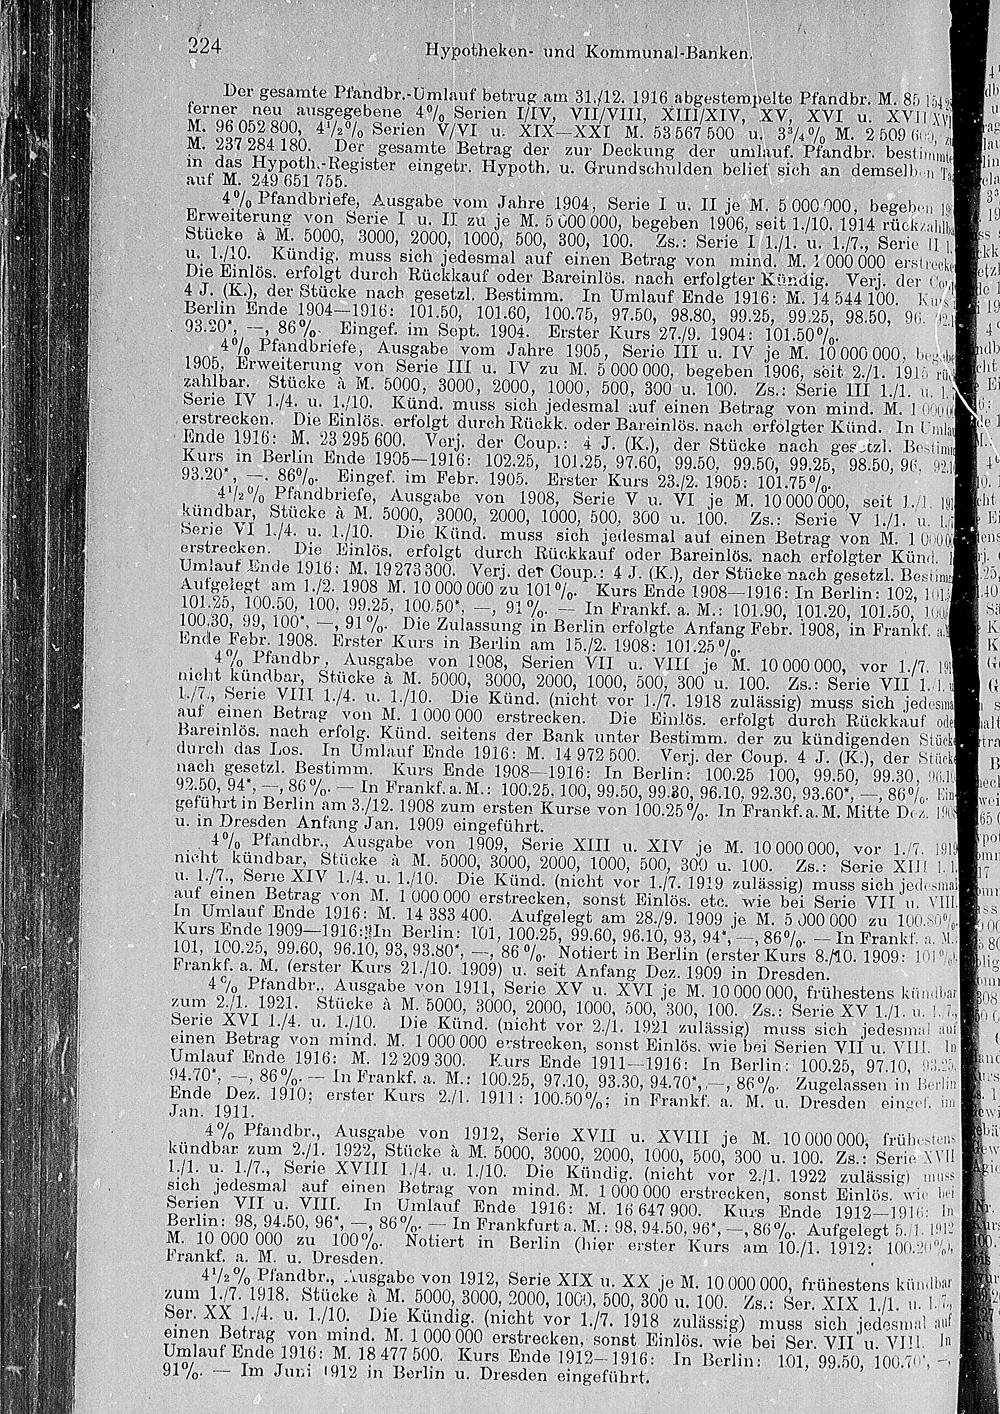 224
Hypotheken- und Kommunal-Banken.
Der gesamte Pfandbr.-Umlauf betrug am 31./12. 1916 abgestempelte Pfandbr. M. 85
ferner neu ausgegebene 4% Serien I/IV, VII/VIII, XIII/XIV, XV, XVI u. XVII
M. 96 052 800, 4½% Serien V/VI u. XIX—XXI M. 53 567 500 u. 3¾% M. 2 509
M. 237 284 180. Der gesamte Betrag der zur Deckung der umlauf. Pfandbr. bestimmte
in das Hypoth.-Register eingetr. Hypoth. u. Grundschulden belief sich an demselben
auf M. 249 651 755.
4% Pfandbriefe, Ausgabe vom Jahre 1904, Serie I u. II je M. 5 000 000, begeben
Erweiterung von Serie I u. II zu je M. 5 000 000, begeben 1906, seit 1./10. 1914 rückzahlba
Stücke à M. 5000, 3000, 2000, 1000, 500, 300, 100. Zs.: Serie I 1./1. u. 1./7., Serie II
u. 1./10. Kündig. muss sich jedesmal auf einen Betrag von mind. M. 1 000 000 erstrecke
Die Einlös. erfolgt durch Rückkauf oder Bareinlös. nach erfolgter Kündig. Verj. der
4 J. (K.), der Stücke nach gesetzl. Bestimm. In Umlauf Ende 1916: M. 14 544 100.
Berlin Ende 1904—1916: 101.50, 101.60, 100.75, 97.50, 98.80, 99.25, 99.25, 98.50,
93.20*, —, 86%. Eingef. im Sept. 1904. Erster Kurs 27./9. 1904: 101.50%.
4% Pfandbriefe, Ausgabe vom Jahre 1905, Serie III u. IV je M. 10 000 000,
1905, Erweiterung von Serie III u. IV zu M. 5 000 000, begeben 1906, seit 2./1. 1915
zahlbar. Stücke à M. 5000, 3000, 2000, 1000, 500, 300 u. 100. Zs.: Serie III 1./1. u.
Serie IV 1./4. u. 1./10. Künd. muss sich jedesmal auf einen Betrag von mind. M.
erstrecken. Die Einlös. erfolgt durch Rückk. oder Bareinlös. nach erfolgter Künd. In
Ende 1916: M. 23 295 600. Verj. der Coup.: 4 J. (K.), der Stücke nach gesetzl.
Kurs in Berlin Ende 1905—1916: 102.25, 101.25, 97.60, 99.50, 99.50, 99.25, 98.50, 96,
93.20*, —. 86%. Eingef. im Febr. 1905. Erster Kurs 23./2. 1905: 101.75%.
4½% Pfandbriefe, Ausgabe von 1908, Serie V u. VI je M. 10 000 000, seit
kündbar, Stücke à M. 5000, 3000, 2000, 1000, 500, 300 u. 100. Zs.: Serie V 1./1. u.
Serie VI 1./4. u. 1./10. Die Künd. muss sich jedesmal auf einen Betrag von M.
erstrecken. Die Einlös. erfolgt durch Rückkauf oder Bareinlös. nach erfolgter Künd.
Umlauf Ende 1916: M. 19 273 300. Verj. der Coup.: 4 J. (K.), der Stücke nach gesetzl. Bestimm
Aufgelegt am 1./2. 1908 M. 10 000 000 zu 101%. Kurs Ende 1908—1916: In Berlin: 102,
101.25, 100.50, 100, 99.25, 100.50*, —, 91%. — In Frankf. a. M.: 101.90, 101.20, 101.50,
100.30, 99, 100*, —, 91%. Die Zulassung in Berlin erfolgte Anfang Febr. 1908, in Frankf.
Ende Febr. 1908. Erster Kurs in Berlin am 15./2. 1908: 101.25%.
4% Pfandbr., Ausgabe von 1908, Serien VII u. VIII je M. 10 000 000, vor 1./7.
nicht kündbar, Stücke à M. 5000, 3000, 2000, 1000, 500, 300 u. 100. Zs.: Serie VII
1./7., Serie VIII 1./4. u. 1./10. Die Künd. (nicht vor 1./7. 1918 zulässig) muss sich jedesma
auf einen Betrag von M. 1 000 000 erstrecken. Die Einlös. erfolgt durch Rückkauf oder
Bareinlös. nach erfolg. Künd. seitens der Bank unter Bestimm. der zu kündigenden Stücke
durch das Los. In Umlauf Ende 1916: M. 14 972 500. Verj. der Coup. 4 J. (K.), der Stücke
nach gesetzl. Bestimm. Kurs Ende 1908—1916: In Berlin: 100.25 100, 99.50, 99.30,
92.50, 94*, —, 86%. — In Frankf. a. M.: 100.25, 100, 99.50, 99.30, 96.10, 92.30, 93.60*, —, 86%.
geführt in Berlin am 3./12. 1908 zum ersten Kurse von 100.25%. In Frankf. a. M. Mitte Dez. 1908
u. in Dresden Anfang Jan. 1909 eingeführt.
4% Pfandbr., Ausgabe von 1909, Serie XIII u. XIV je M. 10 000 000, vor 1./7. 1919
nicht kündbar, Stücke à M. 5000, 3000, 2000, 1000, 500, 300 u. 100. Zs.: Serie XIII 1./1.
u. 1./7., Serie XIV 1./4. u. 1./10. Die Künd. (nicht vor 1./7. 1919 zulässig) muss sich jedesmal
auf einen Betrag von M. 1 000 000 erstrecken, sonst Einlös. etc. wie bei Serie VII u. VIII.
In Umlauf Ende 1916: M. 14 383 400. Aufgelegt am 28./9. 1909 je M. 5 000 000 zu 100.80%.
Kurs Ende 1909—1916: In Berlin: 101, 100.25, 99.60, 96.10, 93, 94*, —, 86%. — In Frankf. a. M.:
101, 100.25, 99.60, 96.10, 93, 93.80*, —, 86%. Notiert in Berlin (erster Kurs 8./10. 1909: 101%),
Frankf. a. M. (erster Kurs 21./10. 1909) u. seit Anfang Dez. 1909 in Dresden.
4% Pfandbr., Ausgabe von 1911, Serie XV u. XVI je M. 10 000 000, frühestens kündbar
zum 2./1. 1921. Stücke à M. 5000, 3000, 2000, 1000, 500, 300, 100. Zs.: Serie XV 1./1. u. 1./7.,
Serie XVI 1./4. u. 1./10. Die Künd. (nicht vor 2./1. 1921 zulässig) muss sich jedesmal auf
einen Betrag von mind. M. 1 000 000 erstrecken, sonst Einlös. wie bei Serien VII u. VIII. In
Umlauf Ende 1916: M. 12 209 300. Kurs Ende 1911—1916: In Berlin: 100.25, 97.10, 93.25,
94.70*, —, 86%. — In Frankf. a. M.: 100.25, 97.10, 93.30, 94.70*, —, 86%. Zugelassen in Berlin
Ende Dez. 1910; erster Kurs 2./1. 1911: 100.50%; in Frankf. a. M. u. Dresden eingef. im
Jan. 1911.
4% Pfandbr., Ausgabe von 1912, Serie XVII u. XVIII je M. 10 000 000, frühestens
kündbar zum 2./1. 1922, Stücke à M. 5000, 3000, 2000, 1000, 500, 300 u. 100. Zs.: Serie XVII
1./1. u. 1./7., Serie XVIII 1./4. u. 1./10. Die Kündig. (nicht vor 2./1. 1922 zulässig) muss
sich jedesmal auf einen Betrag von mind. M. 1 000 000 erstrecken, sonst Einlös. wie bei
Serien VII u. VIII. In Umlauf Ende 1916: M. 16 647 900. Kurs Ende 1912—1916: In
Berlin: 98, 94.50, 96*, —, 86%. — In Frankfurt a. M.: 98, 94.50, 96*, —, 86%. Aufgelegt 5./1. 1912
M. 10 000 000 zu 100%. Notiert in Berlin (hier erster Kurs am 10./1. 1912: 100.20%),
Frankf. a. M. u. Dresden.
4½% Pfandbr., Ausgabe von 1912, Serie XIX u. XX je M. 10 000 000, frühestens kündbar
zum 1./7. 1918. Stücke à M. 5000, 3000, 2000, 1000, 500, 300 u. 100. Zs.: Ser. XIX 1./1. u. 1./7.,
Ser. XX 1./4. u. 1./10. Die Kündig. (nicht vor 1./7. 1918 zulässig) muss sich jedesmal auf
einen Betrag von mind. M. 1 000 000 erstrecken, sonst Einlös. wie bei Ser. VII u. VIII. In
Umlauf Ende 1916: M. 18 477 500. Kurs Ende 1912—1916: In Berlin: 101, 99.50, 100.70*, —,
91%. — Im Juni 1912 in Berlin u. Dresden eingeführt.